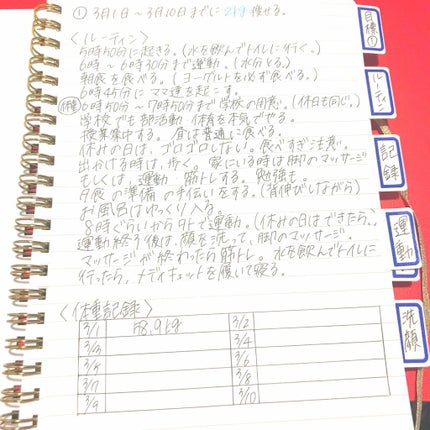 ① 3月1日〜3月10日までに 2kg 痩せる。
〈ルーティン〉
5時50分に起きる。(水を飲んでトイレに行く。)
6時〜6時30分まで運動。(水分とる。)
朝食を食べる。(ヨーグルトを必ず食べる。)
6時45分にママ達を起こす。
(体重) 6時50分〜7時50分まで学校の用意。(休日も同じ。)
学校でも部活動・体育を本気でやる。
授業集中する。昼は普通に食べる。
休みの日は、ゴロゴロしない。食べすぎ注意。
出かける時は、歩く。家にいる時は脚のマッサージ
もしくは、運動、筋トレする。勉強も。
夕食の準備の手伝いをする。(背伸びしながら)
お風呂はゆっくり入る。
8時ぐらいから外で運動。(休みの日はできたら。)
運動終った後は、顔を洗って、脚のマッサージ。
マッサージが終わったら筋トレ。水を飲んでトイレに
行ったら、メディキュットを履いて寝る。
〈体重記録〉
3/1 58.9kg 3/2
3/3 3/4
3/5 3/6
3/7 3/8
3/9 3/10
目標①
ルーティン
記録
運動
洗顔